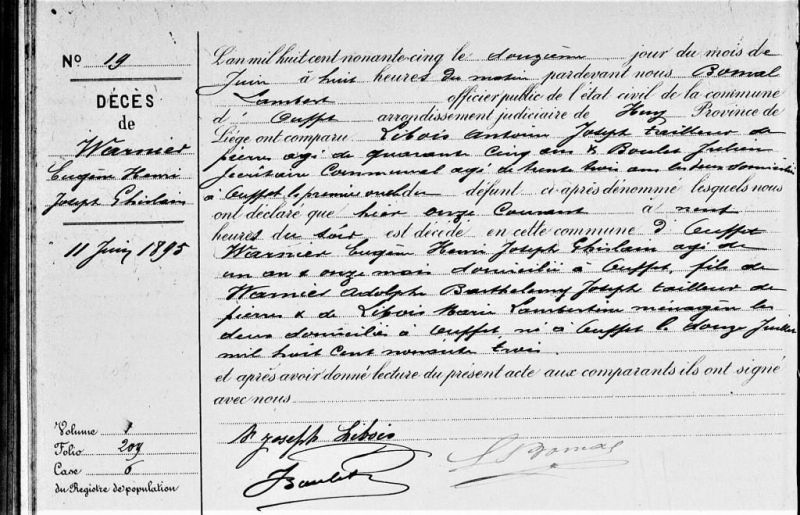 No 19
DÉCÈS
de
Warnier
Eugène Henri
Joseph Ghislain
11 Juin 1895
Volume 1
Folio 209
Case 6
du Registre de population
L'an mil huit cent nonante-cinq le douzième jour du mois de
Juin à huit heures du matin pardevant nous Bomal
Lambert officier public de l'état civil de la commune
d' Ouffet arrondissement judiciaire de Huy Province de
Liége ont comparu Libois Antoine Joseph tailleur de
pierres agé de quarante cinq ans & Boulet Julien
Secrétaire Communal agé de trente trois ans les deux domiciliés
à Ouffet le premier oncle du défunt ci-après dénommé lesquels nous
ont déclaré que hier onze courant à neuf
heures du soir est décédé en cette commune d' Ouffet
Warnier Eugène Henri Joseph Ghislain agé de
un an & onze mois domicilié à Ouffet, fils de
Warnier Adolphe Barthelemy Joseph tailleur de
pierres & de Libois Marie Lambertine ménagère les
deux domiciliés à Ouffet né à Ouffet le douze Juillet
mil huit cent nonante trois.
et après avoir donné lecture du présent acte aux comparants ils ont signé
avec nous
Joseph Libois
Boulet
L Bomal